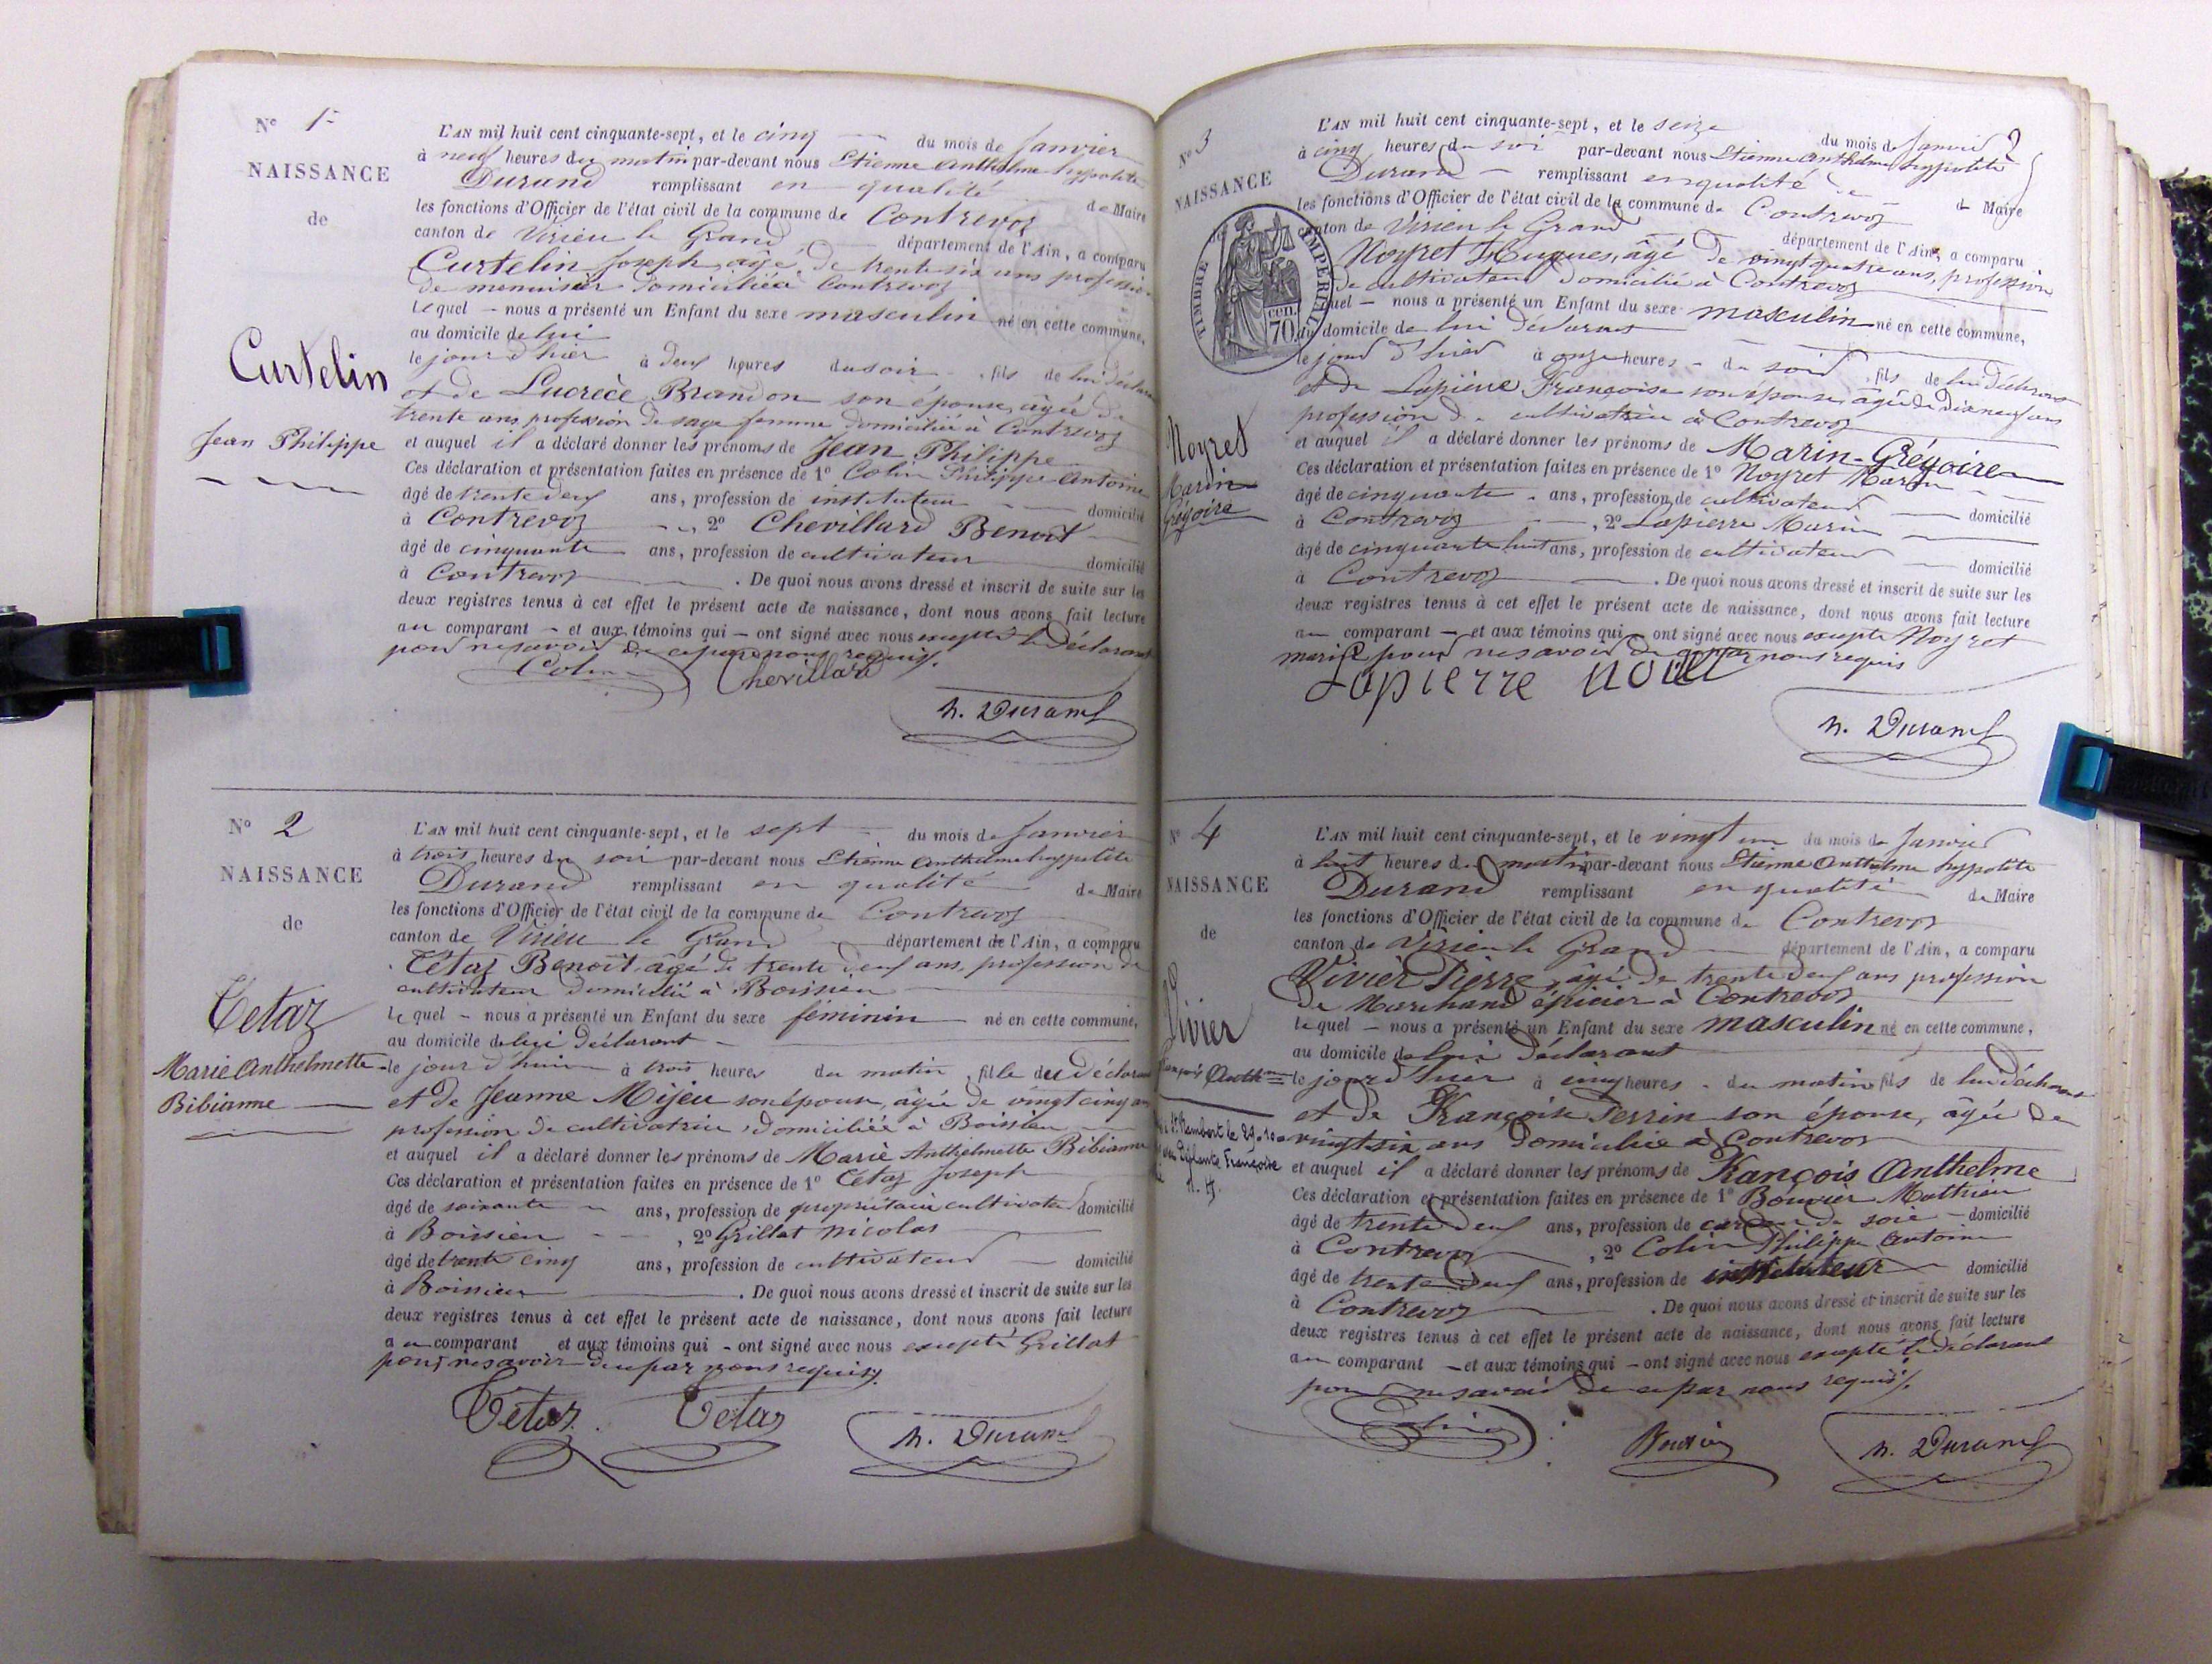 N° 1er
NAISSANCE
de
Curtelin
Jean Philippe
L'AN mil huit cent cinquante-sept, et le cinq du mois de Janvier
à neuf heures du matin par-devant nous Etienne Anthelme hyppolite
Durand remplissant en qualité de Maire
les fonctions d'Officier de l'état civil de la commune de Contrevoz
canton de Virieu le Grand département de l'Ain, a comparu
Curtelin Joseph, âgé de trente six ans profession
de menuisier domicilié à Contrevoz
Lequel – nous a présenté un Enfant du sexe masculin né en cette commune,
au domicile de lui
le jour d'hier à deux heures du soir, fils de lui déclarant
et de Lucrèce Brandon son épouse, âgée de
trente ans, profession de sage femme domiciliée à Contrevoz
et auquel il a déclaré donner les prénoms de Jean Philippe
Ces déclaration et présentation faites en présence de 1° Colin Philippe Antoine
âgé de trente deux ans, profession de instituteur domicilié
à Contrevoz, 2° Chevillard Benoît
âgé de cinquante ans, profession de cultivateur domicilié
à Contrevoz. De quoi nous avons dressé et inscrit de suite sur les
deux registres tenus à cet effet le présent acte de naissance, dont nous avons fait lecture
au comparant – et aux témoins qui – ont signé avec nous excepté le déclarant
pour ne savoir de ce par nous requis.
Colin Chevillard
h. Durand
N° 2
NAISSANCE
de
Tetaz
Marie Anthelmette
Bibianne
L'AN mil huit cent cinquante-sept, et le sept du mois de Janvier
à trois heures du soir par-devant nous Etienne Anthelme hyppolite
Durand remplissant en qualité de Maire
les fonctions d'Officier de l'état civil de la commune de Contrevoz
canton de Virieu le Grand département de l'Ain, a comparu
Tétaz Benoît, âgé de trente deux ans, profession de
cultivateur domicilié à Boissieu
Lequel – nous a présenté un Enfant du sexe féminin né en cette commune,
au domicile de lui déclarant
le jour d'hui à trois heures du matin, fille du déclarant
et de Jeanne Mijeu son épouse, âgée de vingt cinq ans
profession de cultivatrice, domiciliée à Boissieu
et auquel il a déclaré donner les prénoms de Marie Anthelmette Bibianne
Ces déclaration et présentation faites en présence de 1° Tétaz Joseph
âgé de soixante ans, profession de propriétaire cultivateur domicilié
à Boissieu, 2° Grillat Nicolas
âgé de trente cinq ans, profession de cultivateur domicilié
à Boissieu. De quoi nous avons dressé et inscrit de suite sur les
deux registres tenus à cet effet le présent acte de naissance, dont nous avons fait lecture
au comparant et aux témoins qui – ont signé avec nous excepté Grillat
pour ne savoir de ce par nous requis.
Tétaz Tetaz h. Durand
2
N° 3
NAISSANCE
TIMBRE IMPERIAL
cen. 70
Noyret
Marin
Grégoire
L'AN mil huit cent cinquante-sept, et le seize du mois de Janvier
à cinq heures du soir par-devant nous Etienne Anthelme hyppolite
Durand – remplissant en qualité de Maire
les fonctions d'Officier de l'état civil de la commune de Contrevoz
canton de Virieu le Grand département de l'Ain, a comparu
Noyret Hugues, âgé de vingt quatre ans, profession
de cultivateur domicilié à Contrevoz
quel – nous a présenté un Enfant du sexe masculin né en cette commune,
au domicile de lui déclarant
le jour d'hier à onze heures – du soir, fils de lui déclarant
et de Lapierre Françoise son épouse, âgée de dix neuf ans
profession de cultivatrice à Contrevoz
et auquel il a déclaré donner les prénoms de Marin-Grégoire
Ces déclaration et présentation faites en présence de 1° Noyret Marin
âgé de cinquante ans, profession de cultivateur domicilié
à Contrevoz, 2° Lapierre Marin
âgé de cinquante huit ans, profession de cultivateur domicilié
à Contrevoz. De quoi nous avons dressé et inscrit de suite sur les
deux registres tenus à cet effet le présent acte de naissance, dont nous avons fait lecture
au comparant – et aux témoins qui – ont signé avec nous excepté Noyret
pour ne savoir de par nous requis
Lapierre
h. Durand
N° 4
NAISSANCE
de
Vivier
François Anthme
L'AN mil huit cent cinquante-sept, et le vingt un du mois de Janvier
à huit heures du matin par-devant nous Etienne Anthelme hyppolite
Durand remplissant en qualité de Maire
les fonctions d'Officier de l'état civil de la commune de Contrevoz
canton de Virieu le Grand département de l'Ain, a comparu
Vivier Pierre, âgé de trente deux ans profession
de Marchand épicier à Contrevoz
Lequel – nous a présenté un Enfant du sexe masculin né en cette commune,
au domicile de lui déclarant
le jour d'hier à cinq heures – du matin fils de lui déclarant
et de Françoise Perrin son épouse, âgée de
vingt six ans domiciliée à Contrevoz
et auquel il a déclaré donner les prénoms de François Anthelme
Ces déclaration et présentation faites en présence de 1° Bouvier Mathieu
âgé de trente deux ans, profession de cardeur de soie – domicilié
à Contrevoz, 2° Colin Philippe Antoine
âgé de trente deux ans, profession de instituteur domicilié
à Contrevoz. De quoi nous avons dressé et inscrit de suite sur les
deux registres tenus à cet effet le présent acte de naissance, dont nous avons fait lecture
au comparant – et aux témoins qui – ont signé avec nous excepté le déclarant
pour ne savoir de ce par nous requis.
Colin Bouvier h. Durand